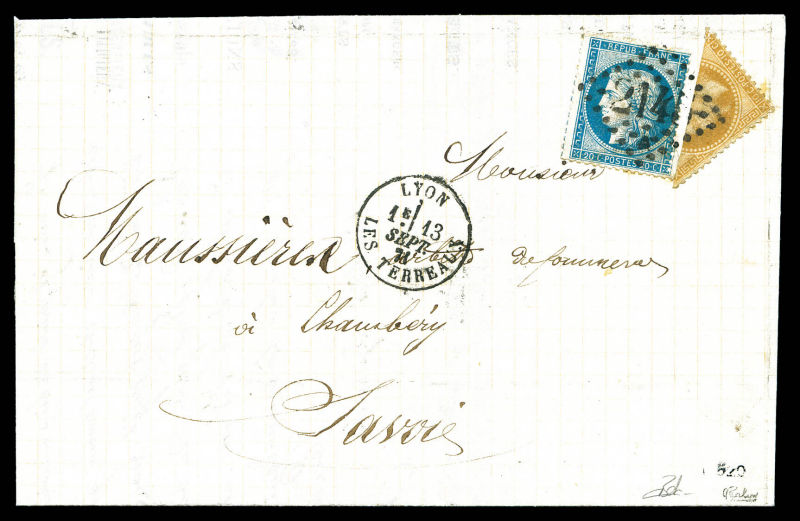 REPUB. FRANC.
20 C. POSTES 20 C.
214
Monsieur
LYON
1E 13
SEPT.
71
LES TERREAUX
Maussièrex de commerce
à Chambéry
Savoie
520